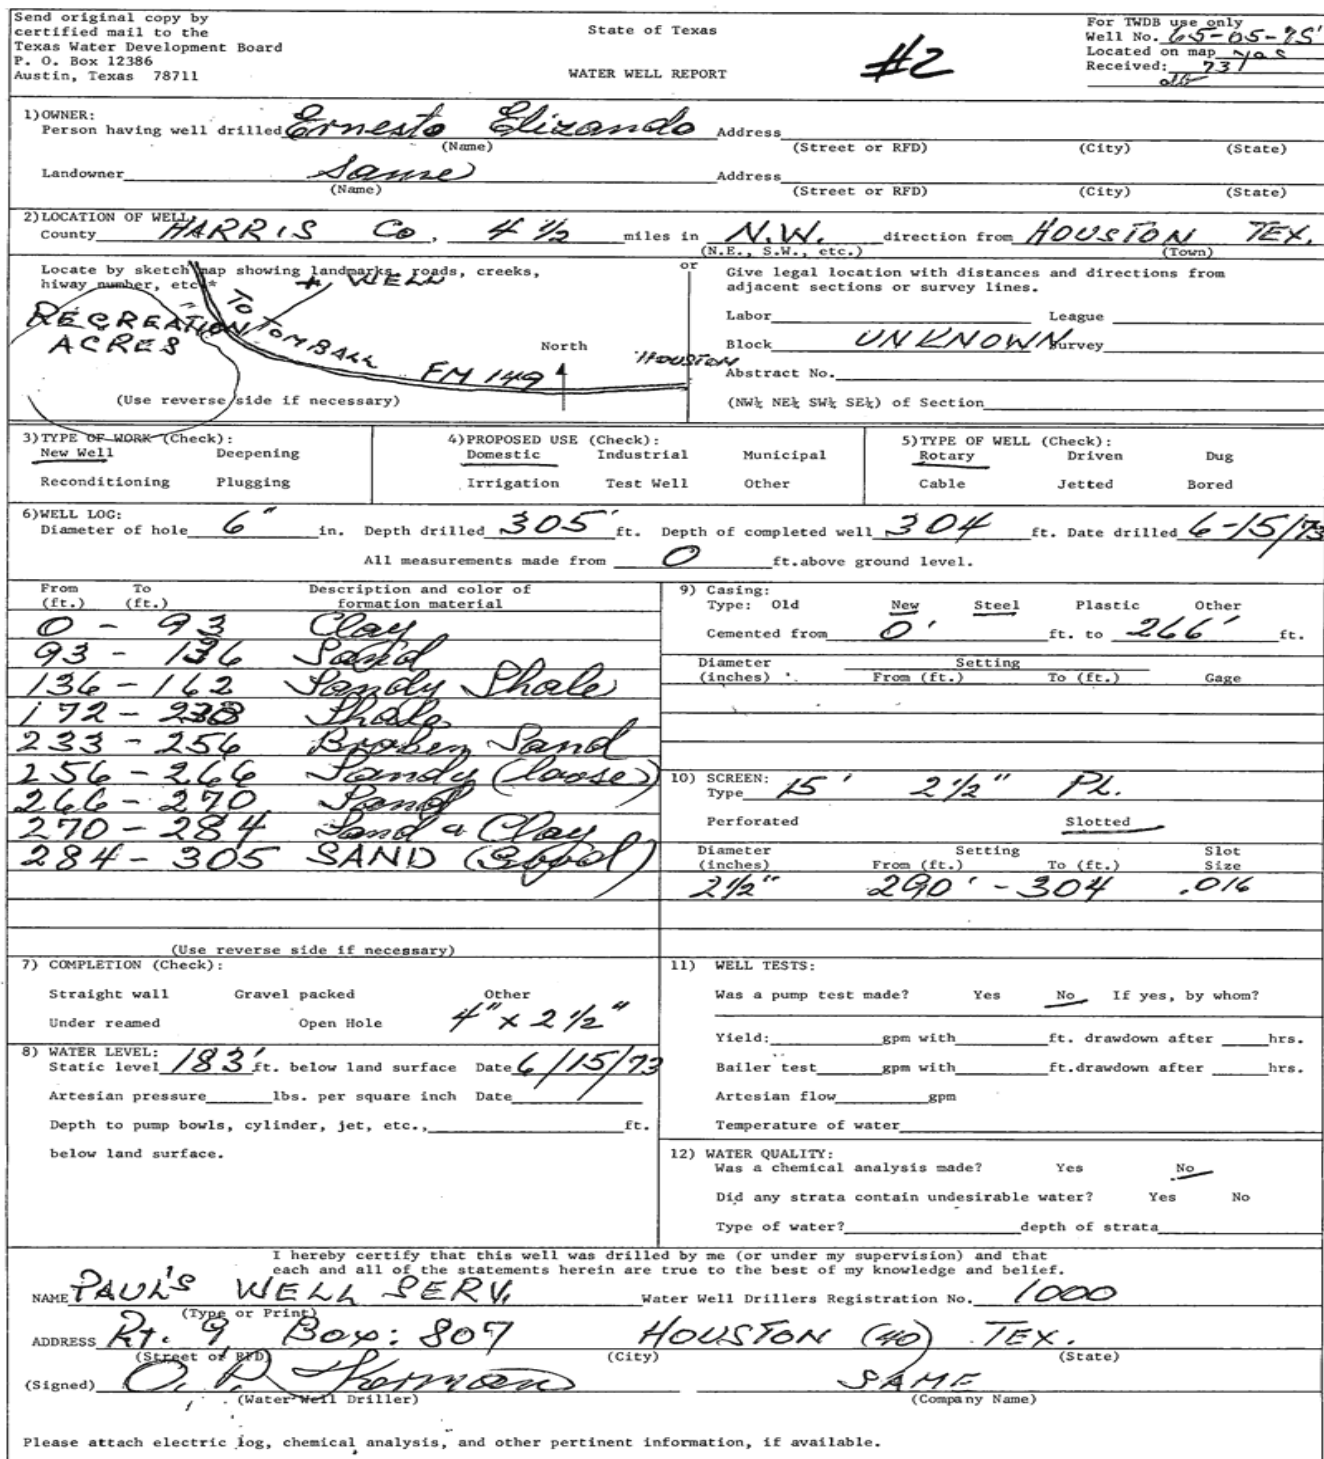 Send original copy by
certified mail to the
Texas Water Development Board
P. O. Box 12386
Austin, Texas 78711
State of Texas
WATER WELL REPORT
#2
For TWDB use only
Well No. 65-05-
Located on map yes
Received: 731
1)OWNER:
Person having well drilled Ernesto Elizando Address
(Name) (Street or RFD) (City) (State)
Landowner Same Address
(Name) (Street or RFD) (City) (State)
2)LOCATION OF WELL:
County HARRIS Co, 4 1/2 miles in N.W. direction from HOUSTON TEX.
(N.E., S.W., etc.) (Town)
Locate by sketch map showing landmarks, roads, creeks,
hiway number, etc.*
WELL
RECREATION
ACRES
TO TOMBALL
FM 149
North
HOUSTON
(Use reverse side if necessary)
or
Give legal location with distances and directions from
adjacent sections or survey lines.
Labor League
Block UNKNOWN Survey
Abstract No.
(NW¼ NE¼ SW¼ SE¼) of Section
3)TYPE OF WORK (Check):
New Well Deepening
Reconditioning Plugging
4)PROPOSED USE (Check):
Domestic Industrial Municipal
Irrigation Test Well Other
5)TYPE OF WELL (Check):
Rotary Driven Dug
Cable Jetted Bored
6)WELL LOG:
Diameter of hole 6" in. Depth drilled 305' ft. Depth of completed well 304 ft. Date drilled 6-15/73
All measurements made from 0 ft.above ground level.
From To Description and color of
(ft.) (ft.) formation material
0 - 93 Clay
93 - 136 Sand
136 - 162 Sandy Shale
172 - 238 Shale
233 - 256 Broken Sand
256 - 266 Sandy (loose)
266 - 270 Sand
270 - 284 Sand & Clay
284 - 305 SAND (Good)
(Use reverse side if necessary)
9) Casing:
Type: Old New Steel Plastic Other
Cemented from 0' ft. to 266' ft.
Diameter Setting
(inches) From (ft.) To (ft.) Gage
10) SCREEN:
Type 15' 2 1/2" PL.
Perforated Slotted
Diameter Setting Slot
(inches) From (ft.) To (ft.) Size
2 1/2" 290' - 304 .016
7) COMPLETION (Check):
Straight wall Gravel packed Other
Under reamed Open Hole 4" x 2 1/2"
8) WATER LEVEL:
Static level 183' ft. below land surface Date 6/15/73
Artesian pressure lbs. per square inch Date
Depth to pump bowls, cylinder, jet, etc., ft.
below land surface.
11) WELL TESTS:
Was a pump test made? Yes No If yes, by whom?
Yield: gpm with ft. drawdown after hrs.
Bailer test gpm with ft.drawdown after hrs.
Artesian flow gpm
Temperature of water
12) WATER QUALITY:
Was a chemical analysis made? Yes No
Did any strata contain undesirable water? Yes No
Type of water? depth of strata
I hereby certify that this well was drilled by me (or under my supervision) and that
each and all of the statements herein are true to the best of my knowledge and belief.
NAME PAUL'S WELL SERV. Water Well Drillers Registration No. 1000
(Type or Print)
ADDRESS Rt. 9 Box: 807 HOUSTON (40) TEX.
(Street or RFD) (City) (State)
(Signed) O. P. SAME
(Water Well Driller) (Company Name)
Please attach electric log, chemical analysis, and other pertinent information, if available.